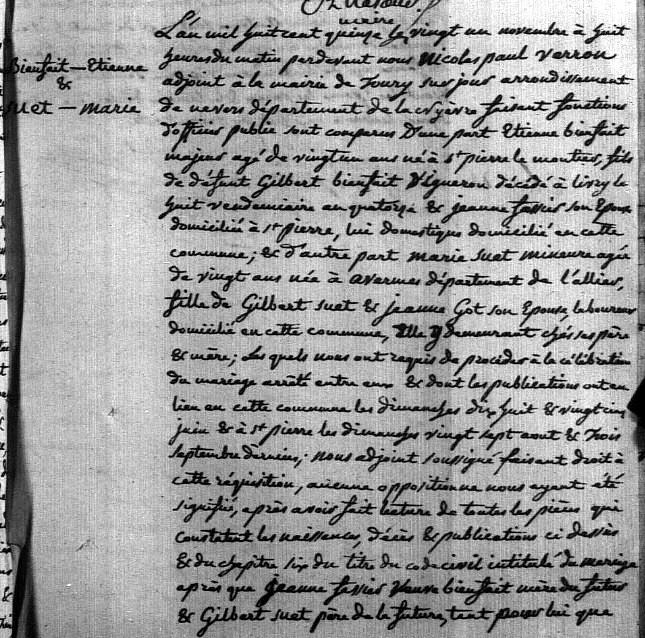 maire
L'an mil huit cent quinze le vingt un novembre à huit
heures du matin pardevant nous Nicolas paul verron
Bienfait — Etienne
&
suet — marie
adjoint à la mairie de Toury sur jour arrondissement
de nevers département de la Nyèvre faisant fonctions
d'officier public sont comparus D'une part Etienne bienfait
majeur agé de vingt un ans né à st pierre le moutier, fils
de défunt Gilbert bienfait Vigneron décédé à livry le
huit vendemiaire an quatorze & jeanne fassier son Epouse
domicilié à st pierre, lui domestique domicilié en cette
commune; & d'autre part marie suet mineure agée
de vingt ans née à avermes département de l'allier,
fille de Gilbert suet & jeanne Got son Epouse, laboureur
domicilié en cette commune, Elle y demeurant chés ses père
& mère; Les quels nous ont requis de procéder à la célébration
du mariage arrêté entre eux & dont les publications ont eu
lieu en cette commune les dimanches dix huit & vingt cinq
juin & à st pierre les dimanches vingt sept aout & trois
septembre derniers; nous adjoint soussigné faisant droit à
cette réquisition, aucune opposition ne nous ayant été
signifié, après avoir fait lecture de toutes les pièces qui
constatent les naissances, décès & publications ci dessus
& du chapitre six du titre du code civil intitulé du mariage
après que jeanne fassier Veuve bienfait mère du futur
& Gilbert suet père de la future, tant pour lui que